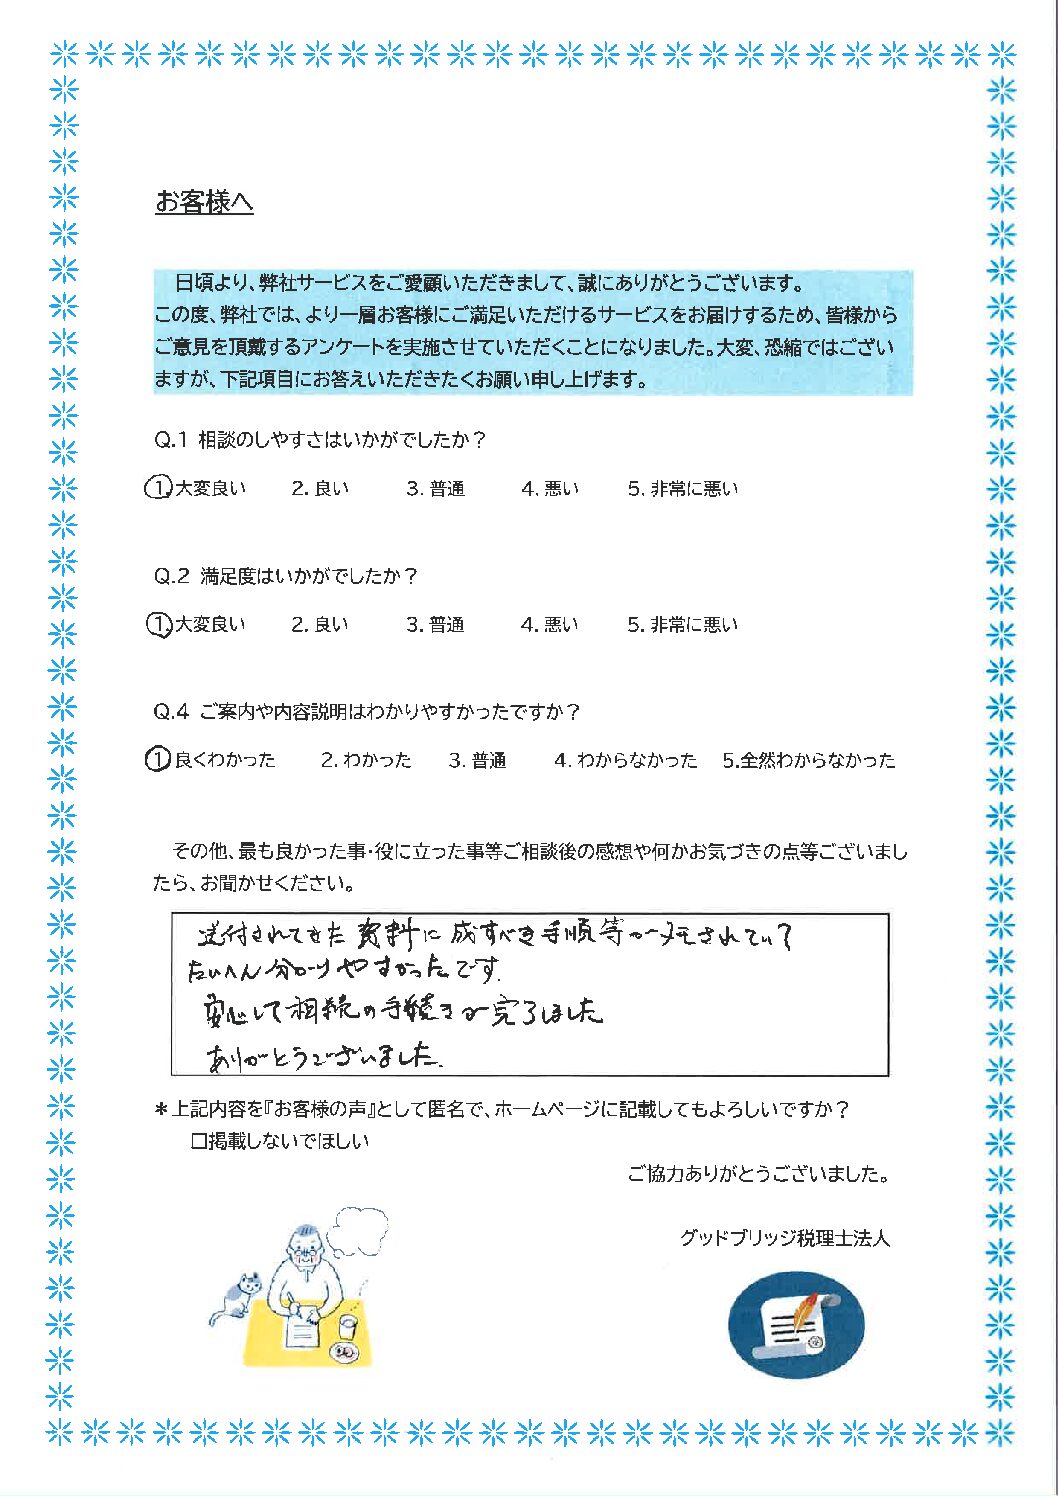 お客様へ
日頃より、弊社サービスをご愛顧いただきまして、誠にありがとうございます。
この度、弊社では、より一層お客様にご満足いただけるサービスをお届けするため、皆様から
ご意見を頂戴するアンケートを実施させていただくことになりました。大変、恐縮ではござい
ますが、下記項目にお答えいただきたくお願い申し上げます。
Q.1 相談のしやすさはいかがでしたか？
1. 大変良い 2. 良い 3. 普通 4. 悪い 5. 非常に悪い
Q.2 満足度はいかがでしたか？
1. 大変良い 2. 良い 3. 普通 4. 悪い 5. 非常に悪い
Q.4 ご案内や内容説明はわかりやすかったですか？
1. 良くわかった 2. わかった 3. 普通 4. わからなかった 5.全然わからなかった
その他、最も良かった事・役に立った事等ご相談後の感想や何かお気づきの点等ございまし
たら、お聞かせください。
送付されてきた資料に成すべき手順等がメモされてい
たいへん分かりやすかったです.
安心して相続の手続きが完了しました
ありがとうございました.
＊上記内容を『お客様の声』として匿名で、ホームページに記載してもよろしいですか？
□掲載しないでほしい
ご協力ありがとうございました。
グッドブリッジ税理士法人